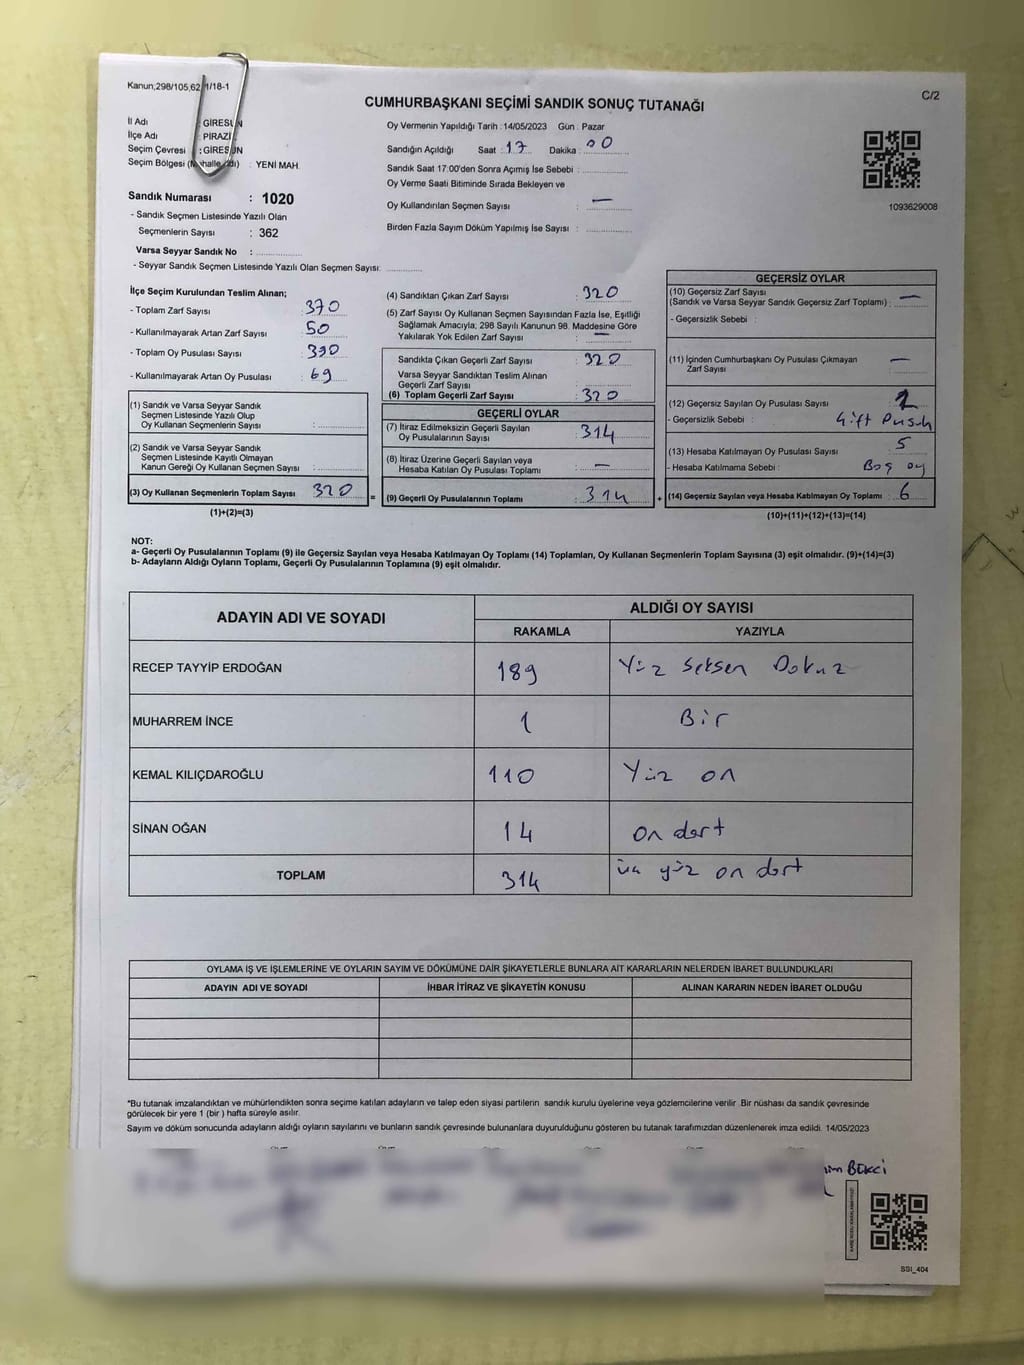 Kanun;298/105,62,1/18-1
C/2
CUMHURBAŞKANI SEÇİMİ SANDIK SONUÇ TUTANAĞI
İl Adı : GİRESUN
İlçe Adı : PİRAZİ
Seçim Çevresi : GİRESUN
Seçim Bölgesi : YENİ MAH.
Sandık Numarası : 1020
- Sandık Seçmen Listesinde Yazılı Olan
Seçmenlerin Sayısı : 362
Varsa Seyyar Sandık No :
- Seyyar Sandık Seçmen Listesinde Yazılı Olan Seçmen Sayısı:
Oy Vermenin Yapıldığı Tarih :14/05/2023 Gün : Pazar
Sandığın Açıldığı Saat : 17 Dakika : 00
Sandık Saat 17:00'den Sonra Açımış İse Sebebi :
Oy Verme Saati Bitiminde Sırada Bekleyen ve
Oy Kullandırılan Seçmen Sayısı : —
Birden Fazla Sayım Döküm Yapılmış İse Sayısı :
1093629008
İlçe Seçim Kurulundan Teslim Alınan;
- Toplam Zarf Sayısı : 370
- Kullanılmayarak Artan Zarf Sayısı : 50
- Toplam Oy Pusulası Sayısı : 390
- Kullanılmayarak Artan Oy Pusulası : 69
(1) Sandık ve Varsa Seyyar Sandık
Seçmen Listesinde Yazılı Olup
Oy Kullanan Seçmenlerin Sayısı :
(2) Sandık ve Varsa Seyyar Sandık
Seçmen Listesinde Kayıtlı Olmayan
Kanun Gereği Oy Kullanan Seçmen Sayısı :
(3) Oy Kullanan Seçmenlerin Toplam Sayısı 320 =
(1)+(2)=(3)
(4) Sandıktan Çıkan Zarf Sayısı : 320
(5) Zarf Sayısı Oy Kullanan Seçmen Sayısından Fazla İse, Eşitliği
Sağlamak Amacıyla; 298 Sayılı Kanunun 98. Maddesine Göre
Yakılarak Yok Edilen Zarf Sayısı : —
Sandıkta Çıkan Geçerli Zarf Sayısı : 320
Varsa Seyyar Sandıktan Teslim Alınan
Geçerli Zarf Sayısı :
(6) Toplam Geçerli Zarf Sayısı : 320
GEÇERLİ OYLAR
(7) İtiraz Edilmeksizin Geçerli Sayılan
Oy Pusulalarının Sayısı : 314
(8) İtiraz Üzerine Geçerli Sayılan veya
Hesaba Katılan Oy Pusulası Toplamı : —
(9) Geçerli Oy Pusulalarının Toplamı : 314 +
GEÇERSİZ OYLAR
(10) Geçersiz Zarf Sayısı
(Sandık ve Varsa Seyyar Sandık Geçersiz Zarf Toplamı) : —
- Geçersizlik Sebebi :
(11) İçinden Cumhurbaşkanı Oy Pusulası Çıkmayan
Zarf Sayısı : —
(12) Geçersiz Sayılan Oy Pusulası Sayısı : 1
- Geçersizlik Sebebi : Çift
(13) Hesaba Katılmayan Oy Pusulası Sayısı : 5
- Hesaba Katılmama Sebebi : Boş oy
(14) Geçersiz Sayılan veya Hesaba Katılmayan Oy Toplamı : 6
(10)+(11)+(12)+(13)=(14)
NOT:
a- Geçerli Oy Pusulalarının Toplamı (9) ile Geçersiz Sayılan veya Hesaba Katılmayan Oy Toplamı (14) Toplamları, Oy Kullanan Seçmenlerin Toplam Sayısına (3) eşit olmalıdır. (9)+(14)=(3)
b- Adayların Aldığı Oyların Toplamı, Geçerli Oy Pusulalarının Toplamına (9) eşit olmalıdır.
ADAYIN ADI VE SOYADI ALDIĞI OY SAYISI
RAKAMLA YAZIYLA
RECEP TAYYİP ERDOĞAN 189 Yüz seksen Dokuz
MUHARREM İNCE 1 Bir
KEMAL KILIÇDAROĞLU 110 Yüz on
SİNAN OĞAN 14 on dört
TOPLAM 314 üç yüz on dört
OYLAMA İŞ VE İŞLEMLERİNE VE OYLARIN SAYIM VE DÖKÜMÜNE DAİR ŞİKAYETLERLE BUNLARA AİT KARARLARIN NELERDEN İBARET BULUNDUKLARI
ADAYIN ADI VE SOYADI İHBAR İTİRAZ VE ŞİKAYETİN KONUSU ALINAN KARARIN NEDEN İBARET OLDUĞU
*Bu tutanak imzalandıktan ve mühürlendikten sonra seçime katılan adayların ve talep eden siyasi partilerin sandık kurulu üyelerine veya gözlemcilerine verilir. Bir nüshası da sandık çevresinde
görülecek bir yere 1 (bir ) hafta süreyle asılır.
Sayım ve döküm sonucunda adayların aldığı oyların sayılarını ve bunların sandık çevresinde bulunanlara duyurulduğunu gösteren bu tutanak tarafımızdan düzenlenerek imza edildi. 14/05/2023
SSI_404